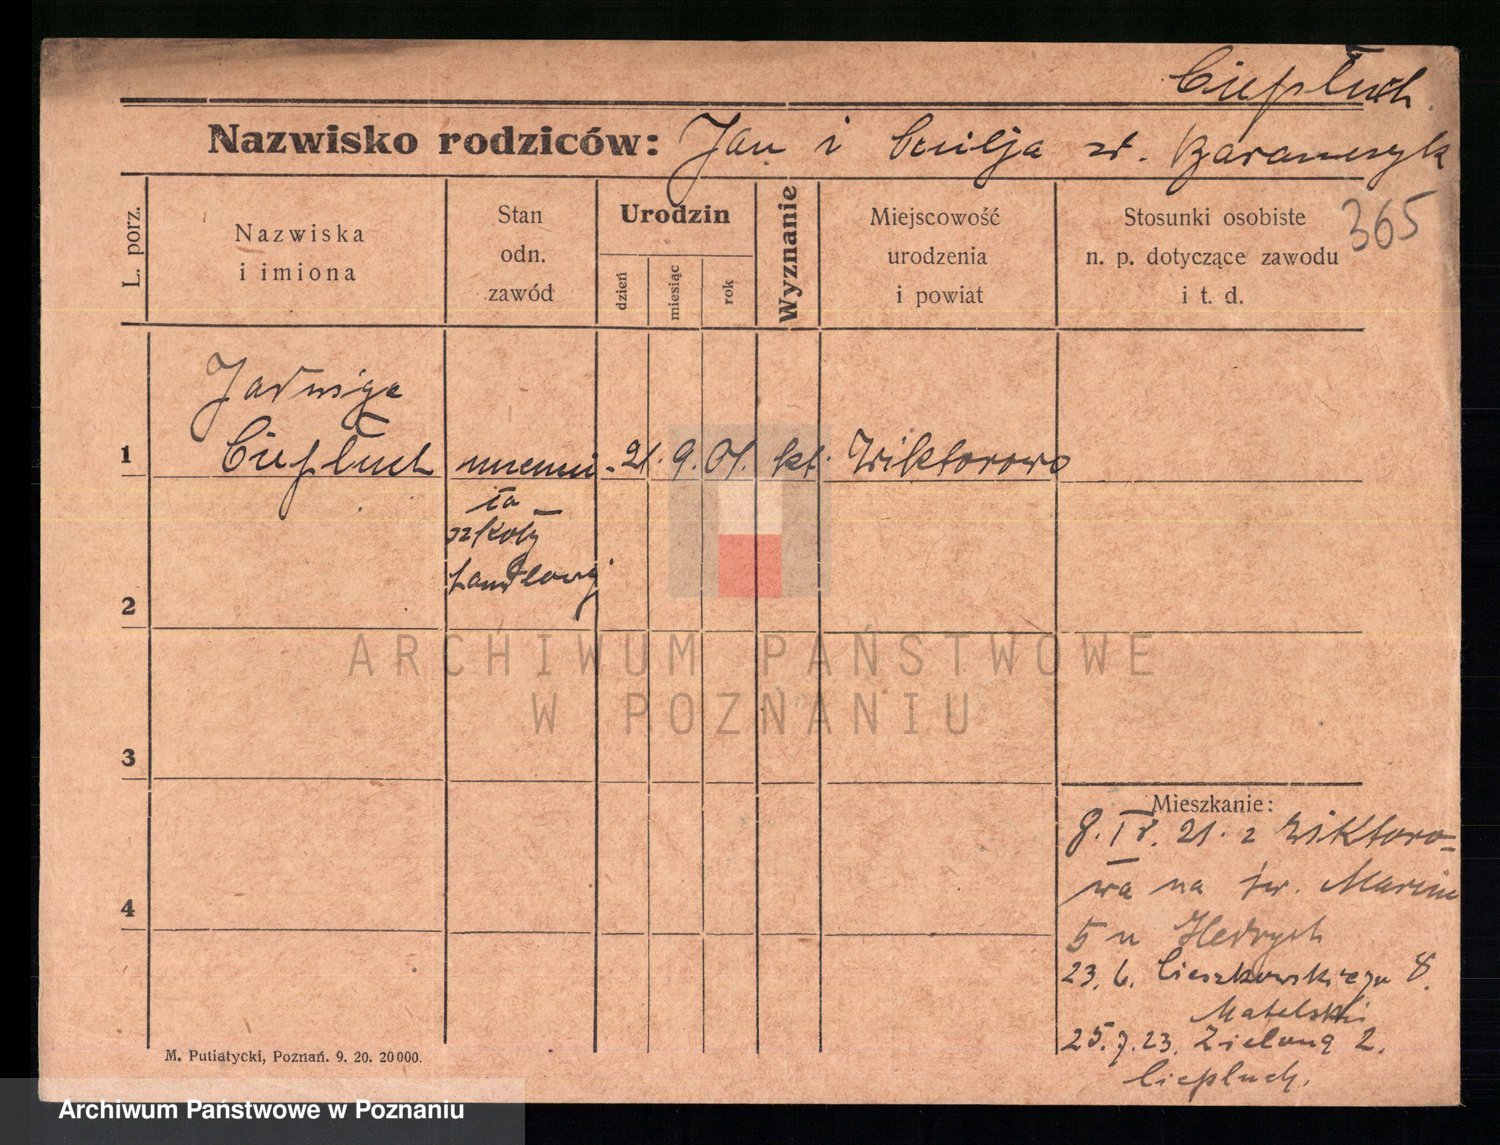 Ciepłuch
Nazwisko rodziców: Jan i Cecilja z d. Baranczyk
365
L. porz.
Nazwiska
i imiona
Stan
odn.
zawód
Urodzin
dzień
miesiąc
rok
Wyznanie
Miejscowość
urodzenia
i powiat
Stosunki osobiste
n. p. dotyczące zawodu
i t. d.
Jadwiga
1 Ciepłuch uczenni- 21. 9. 01. kt. Wiktorowo
ca
szkoły
handlowej
2
3
4
Mieszkanie:
8. IV. 21. z Wiktoro-
wa na św. Marcin
5 u Hedrych
23. 6. Cieszkowskiego 8.
Matelski
25. 7. 23. Zieloną 2.
Ciepłuch.
M. Putiatycki, Poznań. 9. 20. 20000.
ARCHIWUM PAŃSTWOWE
W POZNANIU
Archiwum Państwowe w Poznaniu